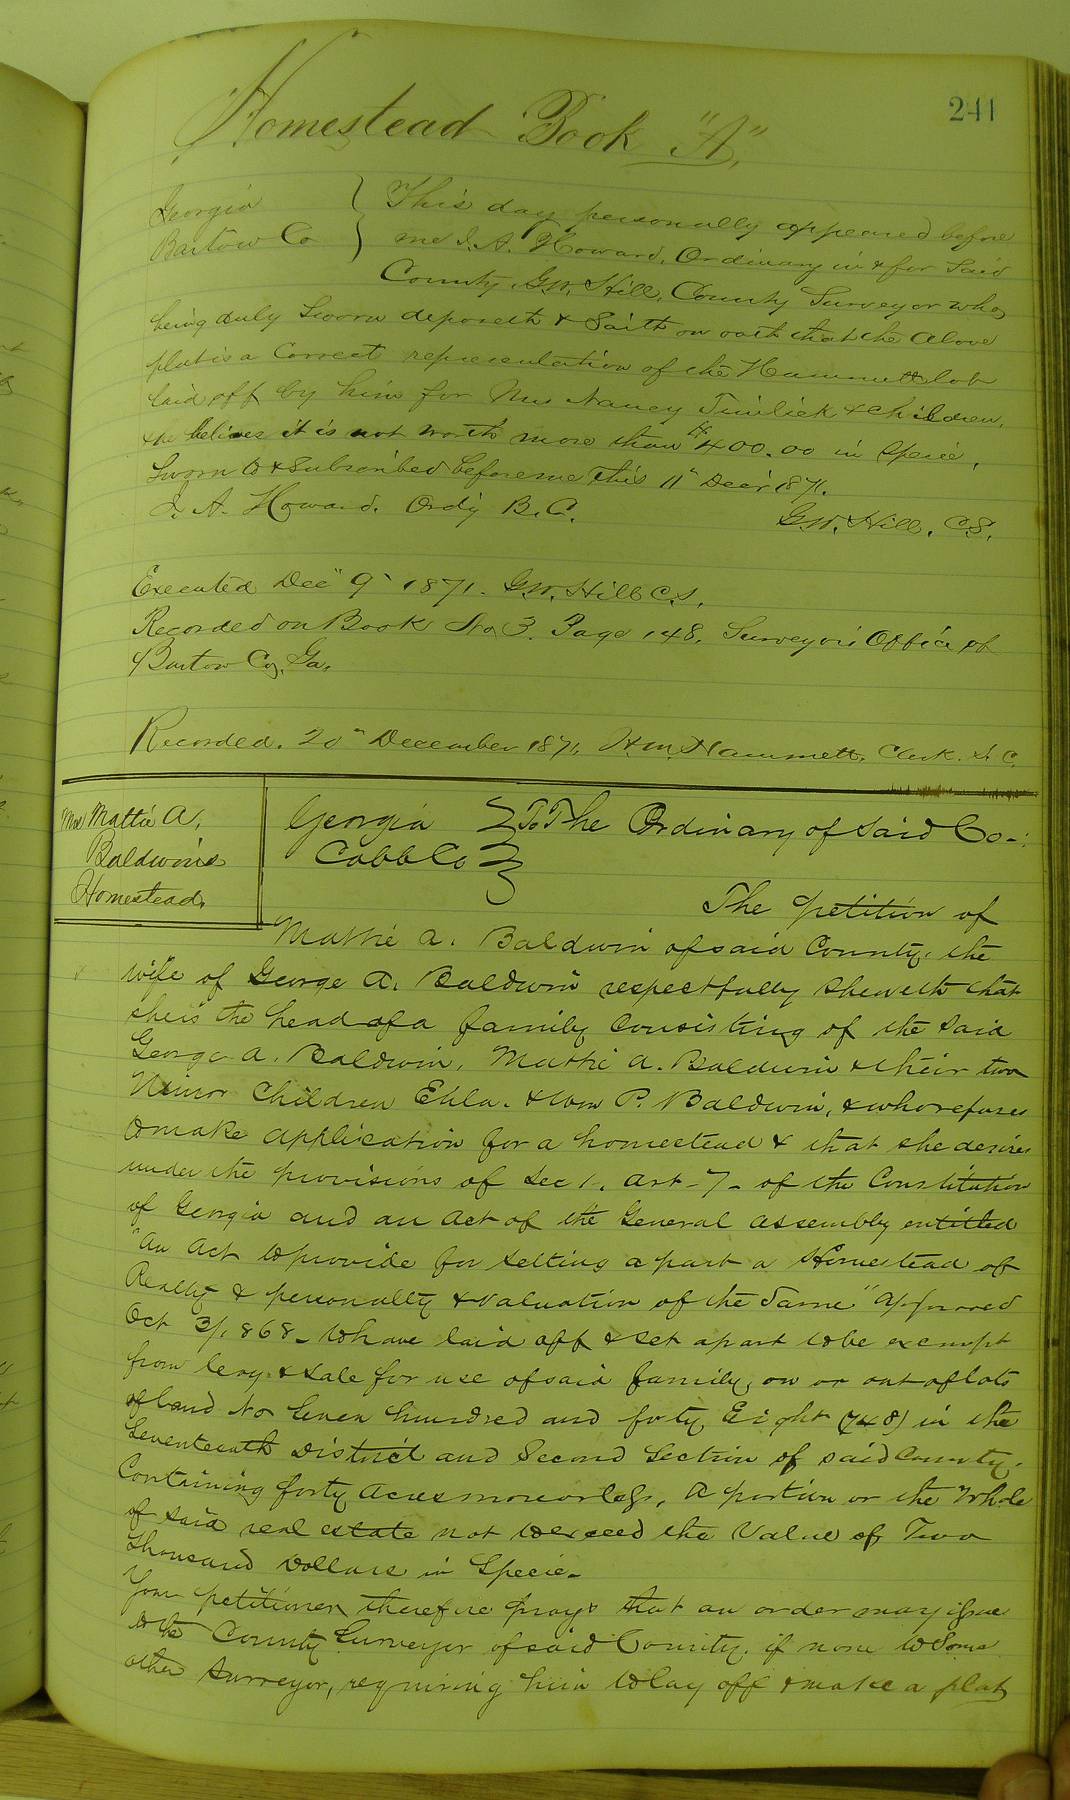 241
Homestead Book "A"
Georgia
Bartow Co
This day personally appeared before
me J. A. Howard, Ordinary in & for Said
County, G.W. Hill, County Surveyor who,
being duly Sworn deposeth & Saith on oath that the above
plat is a Correct representation of the Hammett lot
laid off by him for Mrs Nancy & children,
& he believes it is not worth more than $400.00 in Specie,
Sworn to & Subscribed before me this 11" Decr 1871.
J. A. Howard. Ordy B. C. G.W. Hill. C.S.
Executed Dec" 9" 1871. G.W. Hill C.S.
Recorded on Book No 3. Page 148. Surveyors Office of
Bartow Co, Ga.
Recorded. 20" December 1871, Hammett, Clerk. S. C.
Mrs Mattie A.
Baldwins
Homestead.
Georgia To The Ordinary of said Co-:
Cobb Co
The petition of
Mattie A. Baldwin of said County, the
wife of George A. Baldwin respectfully sheweth that
she is the head of a family consisting of the said
George A. Baldwin, Mattie A. Baldwin & their two
Minor Children & Wm P. Baldwin, & who refuses
to make application for a homestead & that she desires
under the provisions of Sec 1. Art-7- of the Constitution
of Georgia and an Act of the General Assembly entitled
"An Act to provide for setting apart a Homestead of
Realty & personalty & valuation of the Same" Approved
Oct 3/, 868- to have laid off & set apart to be exempt
from levy & sale for use of said family, on or out of lots
of land No Seven hundred and forty Eight (748) in the
Seventeenth District and Second Section of said County.
Containing forty Acres more or less, a portion or the whole
of said real estate not to exceed the Value of Two
Thousand Dollars in Specie-
Your petitioner therefore prays that an order may issue
to the County Surveyor of said County, if none to Some
other Surveyor, requiring him to lay off & make a plat